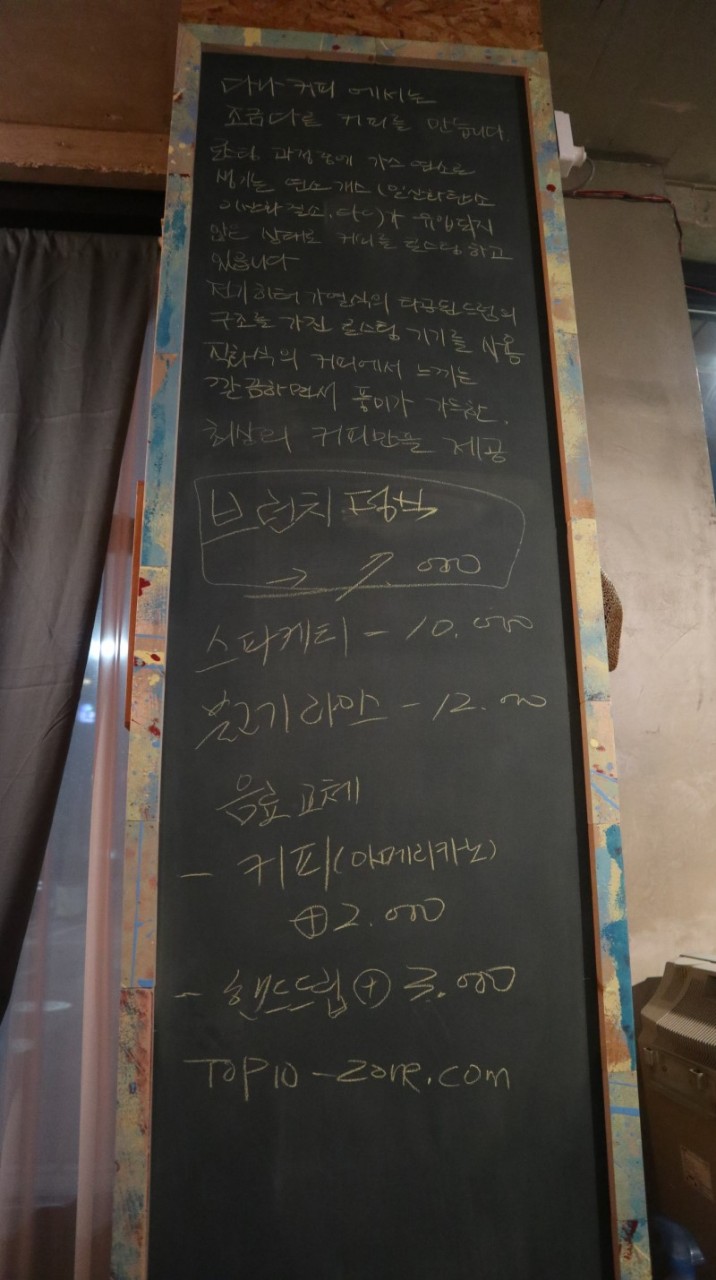 다나 커피 에서는
조금다른 커피를 만듭니다.
로스팅 과정중에 가스 연소로
생기는 연소 개스(일산화탄소
이산화질소, 다수)가 유입되지
않은 상태로 커피를 로스팅하고
있습니다
전기히터 가열식의 타공된드럼의
구조를 가진 로스팅 기기를 사용
직화식의 커피에서 느끼는
깔끔하면서 풍미가 가득한.
최상의 커피만을 제공
브런치
→ 7.000
스파케티 - 10.000
불고기 라이스 - 12.000
음료 교체
- 커피(아메리카노)
⊕2.000
- 핸드드립 ⊕ 3.000
TOP10-ZONE.com